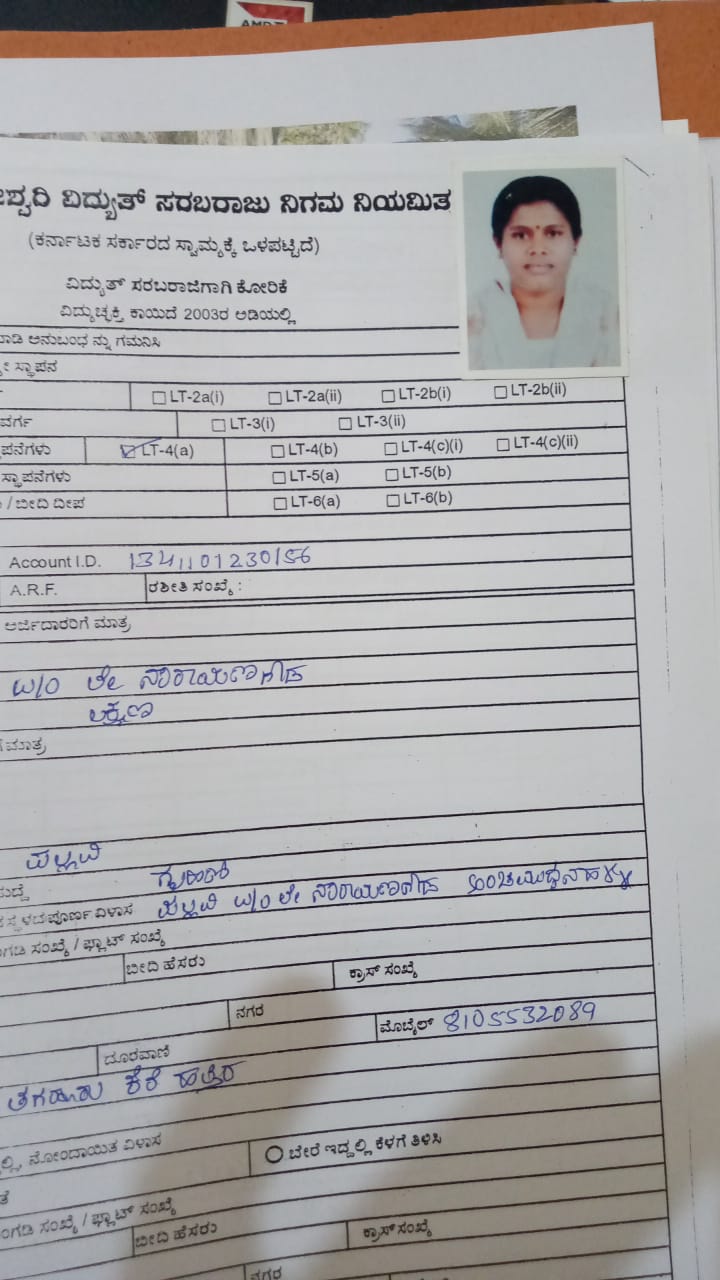 ವಿದ್ಯುತ್ ಸರಬರಾಜು ನಿಗಮ ನಿಯಮಿತ
(ಕರ್ನಾಟಕ ಸರ್ಕಾರದ ಸ್ವಾಮ್ಯಕ್ಕೆ ಒಳಪಟ್ಟಿದೆ)
ವಿದ್ಯುತ್ ಸರಬರಾಜಿಗಾಗಿ ಕೋರಿಕೆ
ವಿದ್ಯುಚ್ಛಕ್ತಿ ಕಾಯಿದೆ 2003ರ ಅಡಿಯಲ್ಲಿ
ಅನುಬಂಧ ನ್ನು ಗಮನಿಸಿ
ಸ್ಥಾಪನ
LT-2a(i) LT-2a(ii) LT-2b(i) LT-2b(ii)
ವರ್ಗ LT-3(i) LT-3(ii)
LT-4(a) LT-4(b) LT-4(c)(i) LT-4(c)(ii)
ಸ್ಥಾಪನೆಗಳು LT-5(a) LT-5(b)
/ ಬೀದಿ ದೀಪ LT-6(a) LT-6(b)
Account I.D. 1341101230156
A.R.F. ರಶೀತಿ ಸಂಖ್ಯೆ :
ಅರ್ಜಿದಾರರಿಗೆ ಮಾತ್ರ
W/O ಲೇ ನಾರಾಯಣಗೌಡ
ಮಾತ್ರ
ಪಲ್ಲವಿ
ಗೃಹಿಣಿ
ಸ್ಥಳದಪೂರ್ಣ ವಿಳಾಸ ಪಲ್ಲವಿ W/O ಲೇ ನಾರಾಯಣಗೌಡ
ಸಂಖ್ಯೆ / ಫ್ಲಾಟ್ ಸಂಖ್ಯೆ
ಬೀದಿ ಹೆಸರು ಕ್ರಾಸ್ ಸಂಖ್ಯೆ
ನಗರ
ದೂರವಾಣಿ ಮೊಬೈಲ್ 8105532089
ಕೆರೆ ಹತ್ತಿರ
ನೋಂದಾಯಿತ ವಿಳಾಸ ಬೇರೆ ಇದ್ದಲ್ಲಿ ಕೆಳಗೆ ತಿಳಿಸಿ
ಸಂಖ್ಯೆ / ಫ್ಲಾಟ್ ಸಂಖ್ಯೆ
ಬೀದಿ ಹೆಸರು ಕ್ರಾಸ್ ಸಂಖ್ಯೆ
ನಗರ